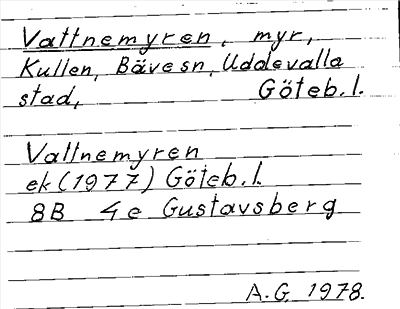 Vattnemyren, myr,
Kullen, Bävesn, Uddevalla
stad, Göteb.l.
Vattnemyren
ek (1977) Göteb.l.
8B 4e Gustavsberg
A.G. 1978.